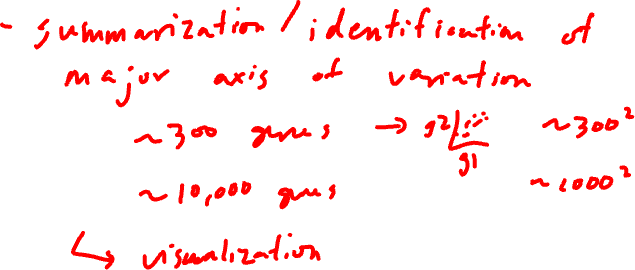 - summarization / identification of
major axis of variation
~300 genes → g2 g1 ~300²
~10,000 genes ~1000²
↳ visualization